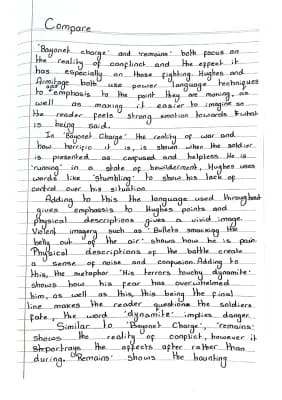 Compare
'Bayonet charge' and 'remains' both focus on
the reality of conflict and the effect it
has especially on those fighting. Hughes and
Armitage both use power language techniques
to emphasis to the point they are making, as
well as making it easier to imagine so
the reader feels strong emotion towards what
is being said.
In 'Bayonet Charge' the reality of war and
how horrific it is, is shown when the soldier
is presented as confused and helpless. He is
'running' in a state of bewilderment, Hughes uses
words like 'Stumbling' to show his lack of
control over his situation.
Adding to this the language used throughout
gives emphasis to Hughes points and
physical descriptions gives a vivid image.
Violent imagery such as 'Bullets smacking the
belly out of the air' shows how he is pain.
Physical descriptions of the battle create
a sense of noise and confusion. Adding to
this, the metaphor 'His terrors touchy dynamite'
shows how his fear has overwhelmed
him, as well as this, this being the final
line makes the reader questions the soldiers
fate, the word 'dynamite' implies danger.
Similar to 'Bayonet Charge', 'remains'
shows the reality of conflict, however it
portrays the affects after rather than
during. 'Remains' shows the haunting